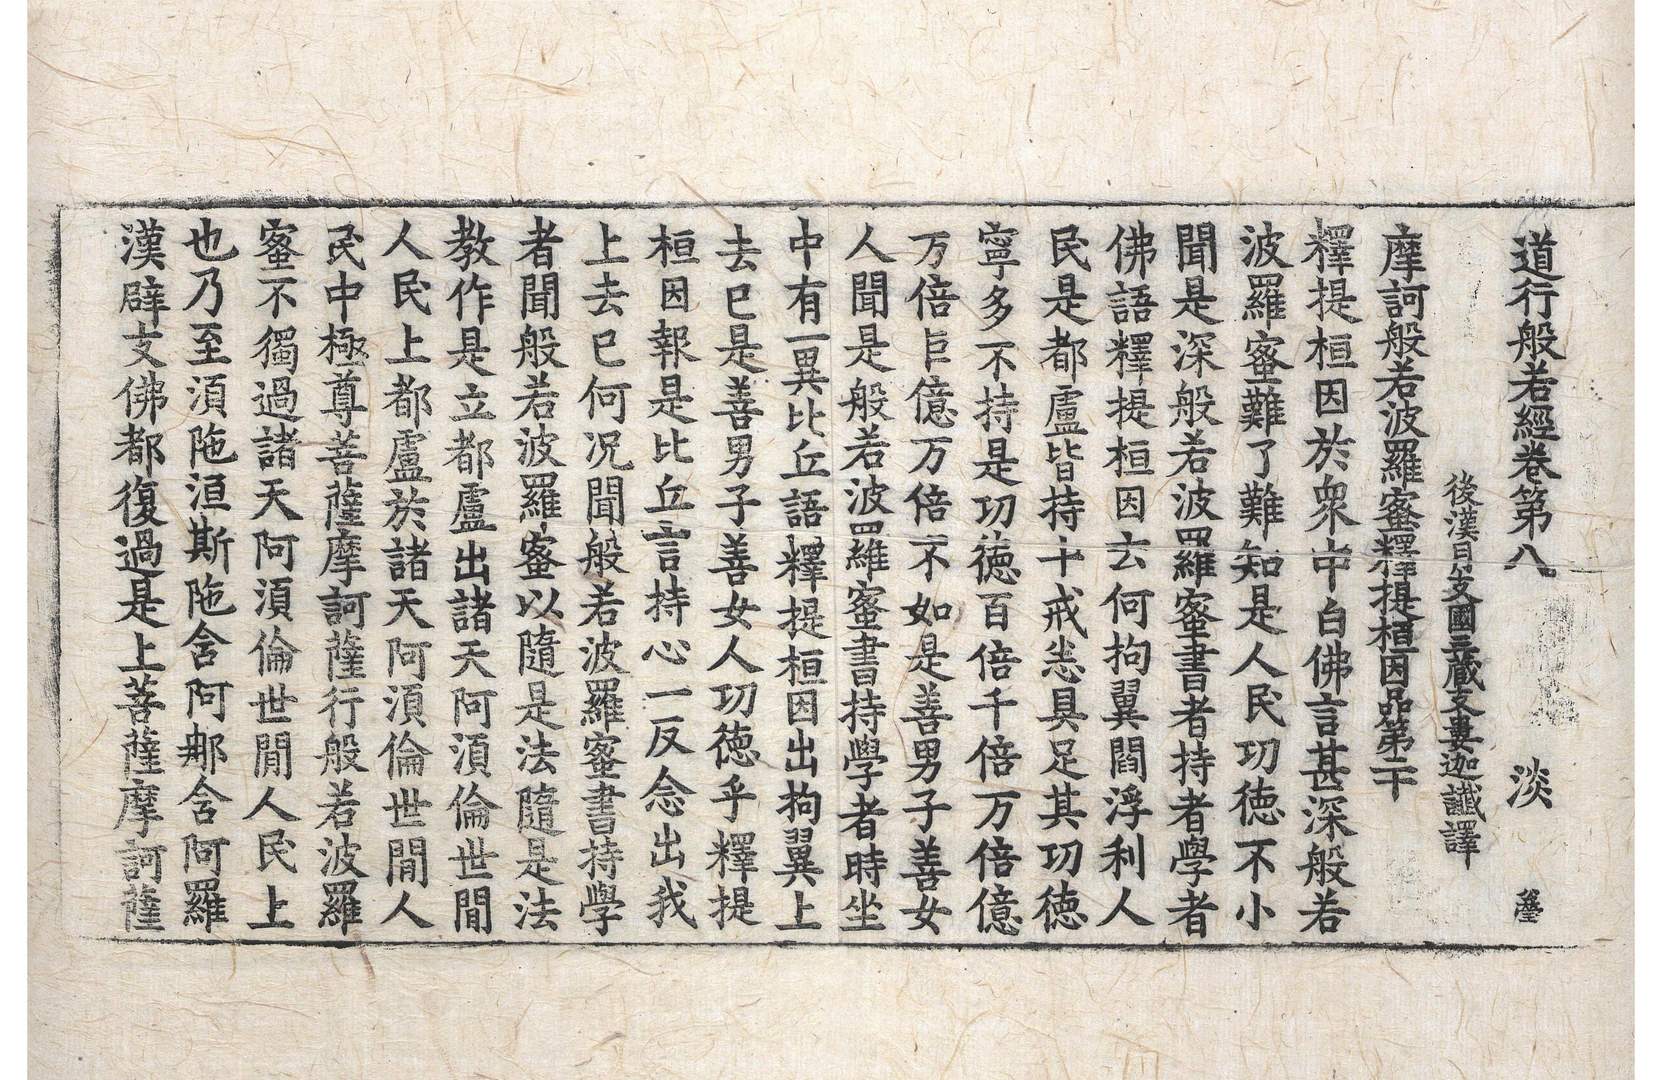 道行般若經卷第八 淡
後漢月支國三藏支婁迦讖譯
摩訶般若波羅蜜釋提桓因品第二十
釋提桓因於衆中白佛言甚深般若
波羅蜜難了難知是人民功德不小
聞是深般若波羅蜜書者持者學者
佛語釋提桓因云何拘翼閻浮利人
民是都盧皆持十戒悉具足其功德
寧多不持是功德百倍千倍万倍億
万倍巨億万倍不如是善男子善女
人聞是般若波羅蜜書持學者時坐
中有一異比丘語釋提桓因出拘翼上
去已是善男子善女人功德乎釋提
桓因報是比丘言持心一反念出我
上去已何況聞般若波羅蜜書持學
者聞般若波羅蜜以隨是法隨是法
教作是立都盧出諸天阿須倫世閒
人民上都盧於諸天阿須倫世閒人
民中極尊菩薩摩訶薩行般若波羅
蜜不獨過諸天阿須倫世閒人民上
也乃至須陁洹斯陁含阿那含阿羅
漢辟支佛都復過是上菩薩摩訶薩